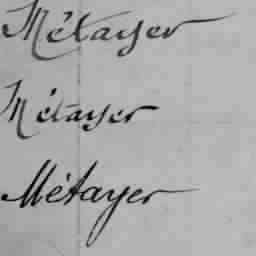 Métayer
Métayer
Métayer